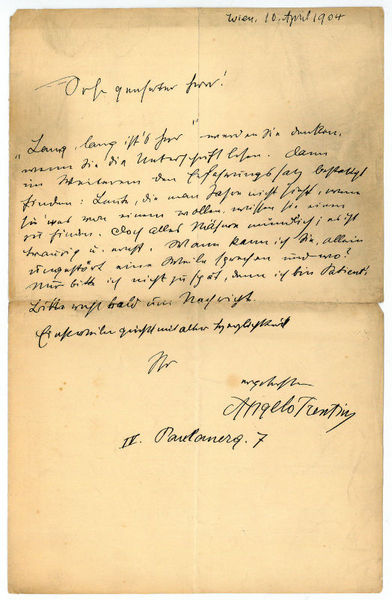 Wien, 10. April 1904
Sehr geehrter Herr!
"Lang, lang ist's her" werden Sie denken,
wenn Sie die Unterschrift lesen. Dann
im Weiteren den Erfahrungssatz bestätigt
finden: Leute, die man Jahre nicht sieht, wenn
sie was von einem wollen, wissen sie einen
zu finden. Doch alles Nähere mündlich; es ist
traurig u. ernst. Wann kann ich Sie, allein
ungestört eine Weile sprechen und wo?
Nur bitte ich nicht zu spät, denn ich bin Patient.
Bitte recht bald um Nachricht.
Einstweilen grüßt mit alter Herzlichkeit
Ihr
ergebenster
Angelo Trentin
IV. Paulanerg. 7